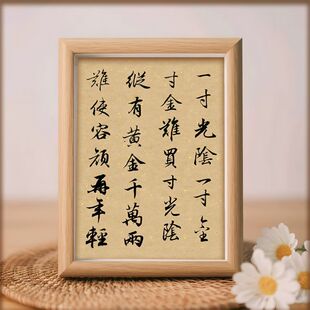 一寸光陰一寸金
寸金難買寸光陰
縱有黃金千萬兩
難使容顏再年輕